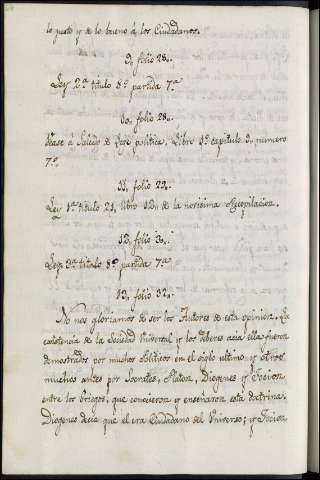 lo justo y de lo bueno á los Ciudadanos.
9, folio 28.
Ley 2ª titulo 8º partida 7ª
10, folio 28.
Vease á Salcedo de Lege politica, Libro 1º capitulo 9, numero
7º.
11, folio 29.
Ley 1ª titulo 21, libro 12, de la novisima Recopilacion.
12, folio 30.
Ley 3ª titulo 8º partida 7ª
13, folio 32.
No nos gloriamos de ser los Autores de esta opinion. La
existencia de la Sociedad Universal y los deberes acia ella fueron
demostrados por muchos politicos en el siglo ultimo y otros
muchos antes por Socrates, Platon, Diogenes y Focion
entre los Griegos, que conocieron y enseñaron esta doctrina.
Diogenes decia que el era Ciudadano del Universo; y Focion